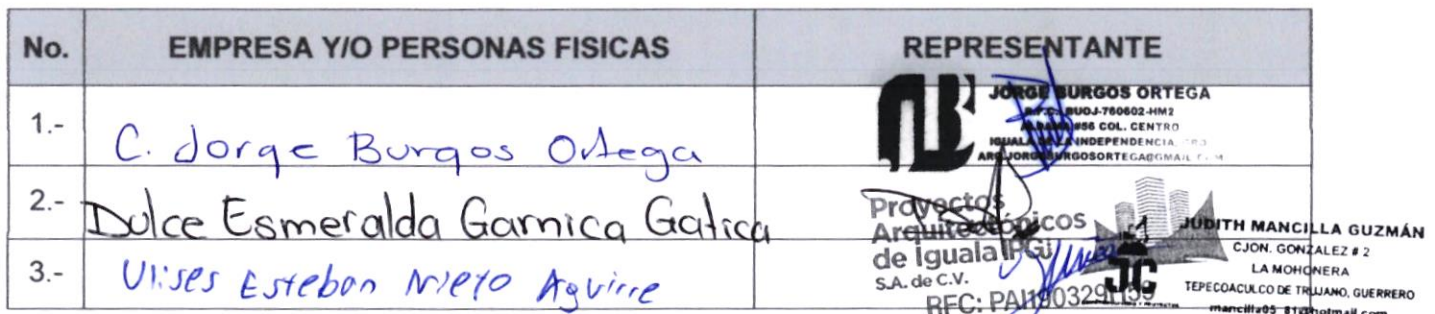 No. EMPRESA Y/O PERSONAS FISICAS REPRESENTANTE
1.- C. Jorge Burgos Ortega
JORGE BURGOS ORTEGA
R.F.C. BUOJ-760602-HM2
#56 COL. CENTRO
IGUALA DE LA INDEPENDENCIA,
2.- Dulce Esmeralda Garnica Gatica
Proyectos
Arquitectónicos
de Iguala IPGJ
S.A. de C.V.
RFC:
3.- Ulises Esteban Nieto Aguirre
JC
JUDITH MANCILLA GUZMÁN
CJON. GONZALEZ # 2
LA MOHONERA
TEPECOACULCO DE TRUJANO, GUERRERO
mancilla05_81@hotmail.com